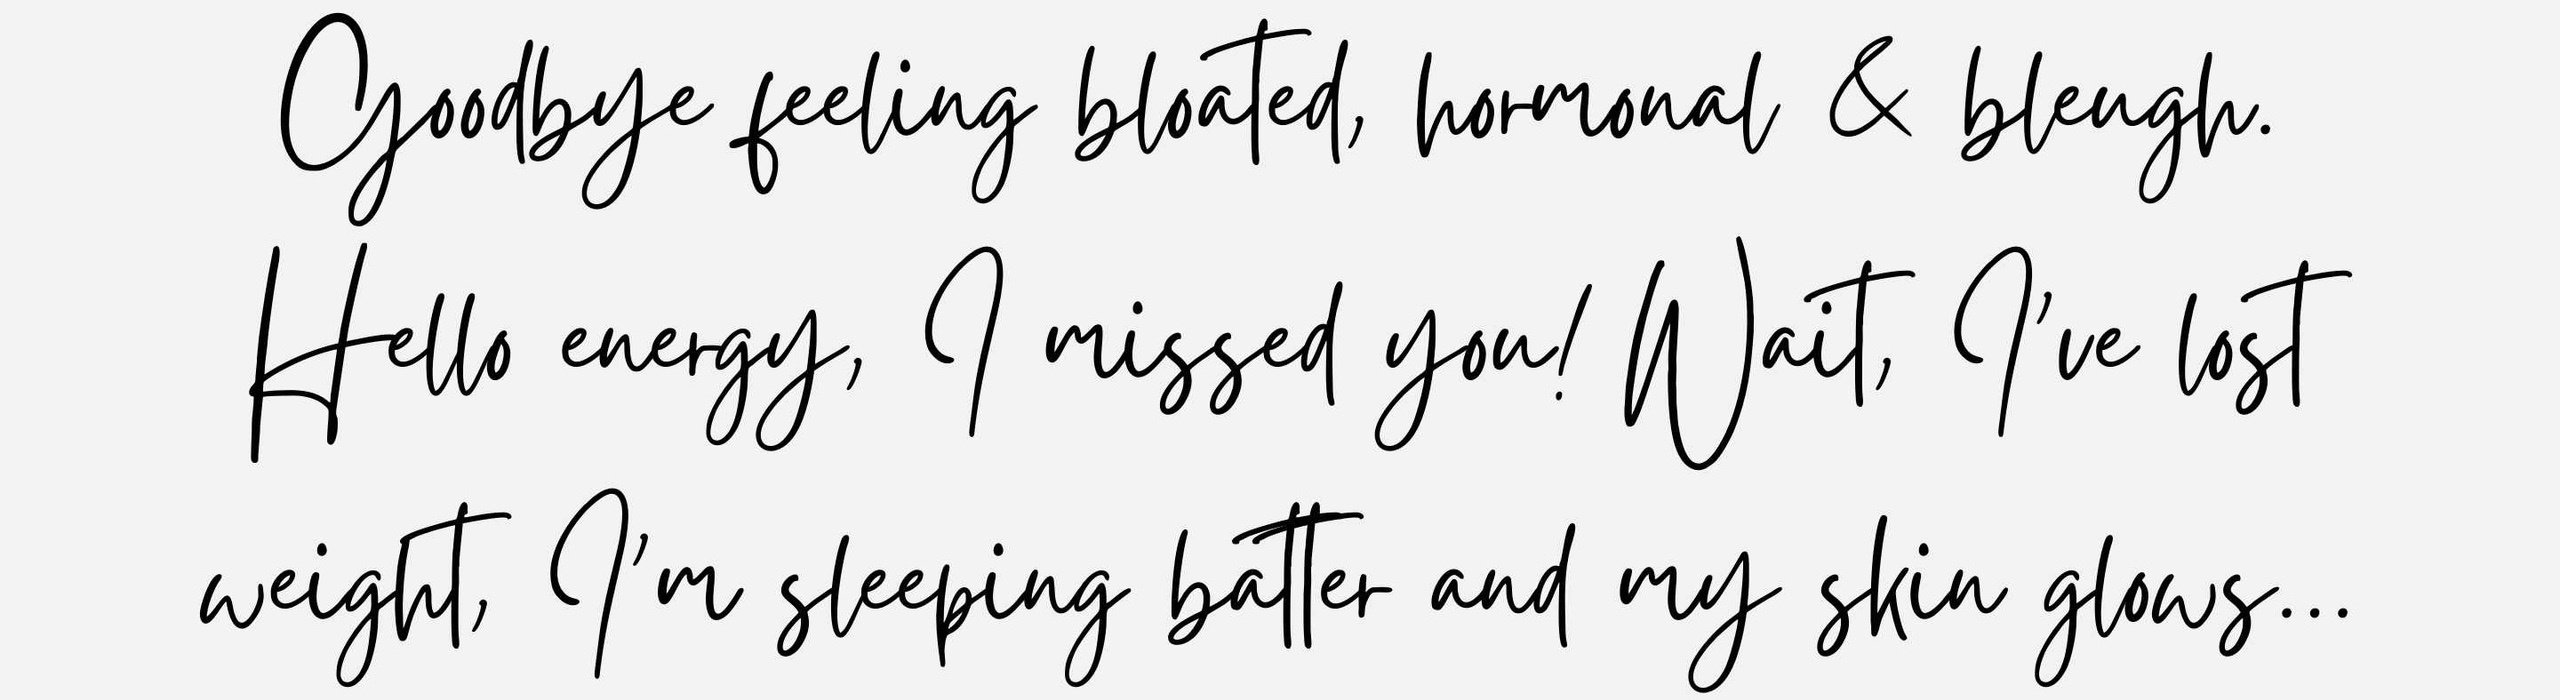 Goodbye feeling bloated, hormonal & bleugh.
Hello energy, I missed you! Wait, I've lost
weight, I'm sleeping batter and my skin glows...